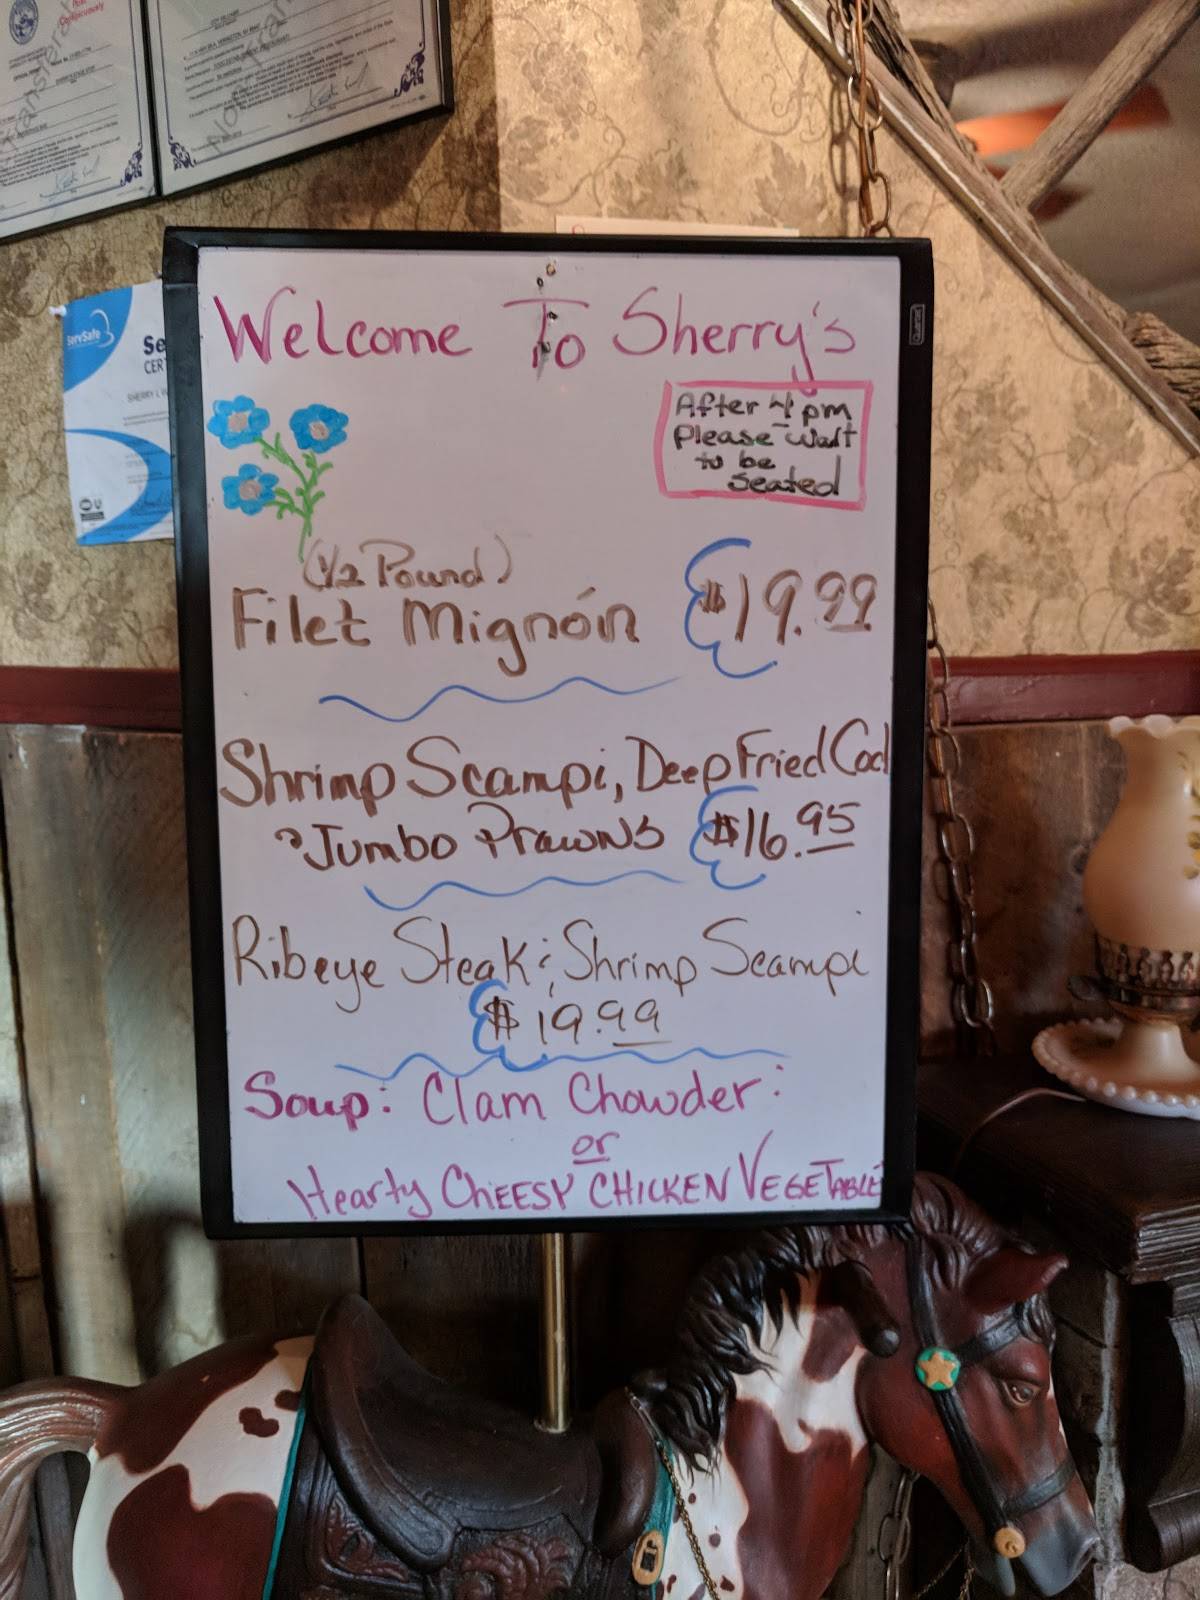 Welcome To Sherry's
After 4 pm
Please wait
to be
Seated
(1/2 Pound)
Filet Mignón $19.99
Shrimp Scampi, Deep Fried Cod
& Jumbo Prawns $16.95
Ribeye Steak & Shrimp Scampi
$19.99
Soup: Clam Chowder:
or
Hearty CHEESY CHICKEN VEGETABLE
ServSafe
Quartet